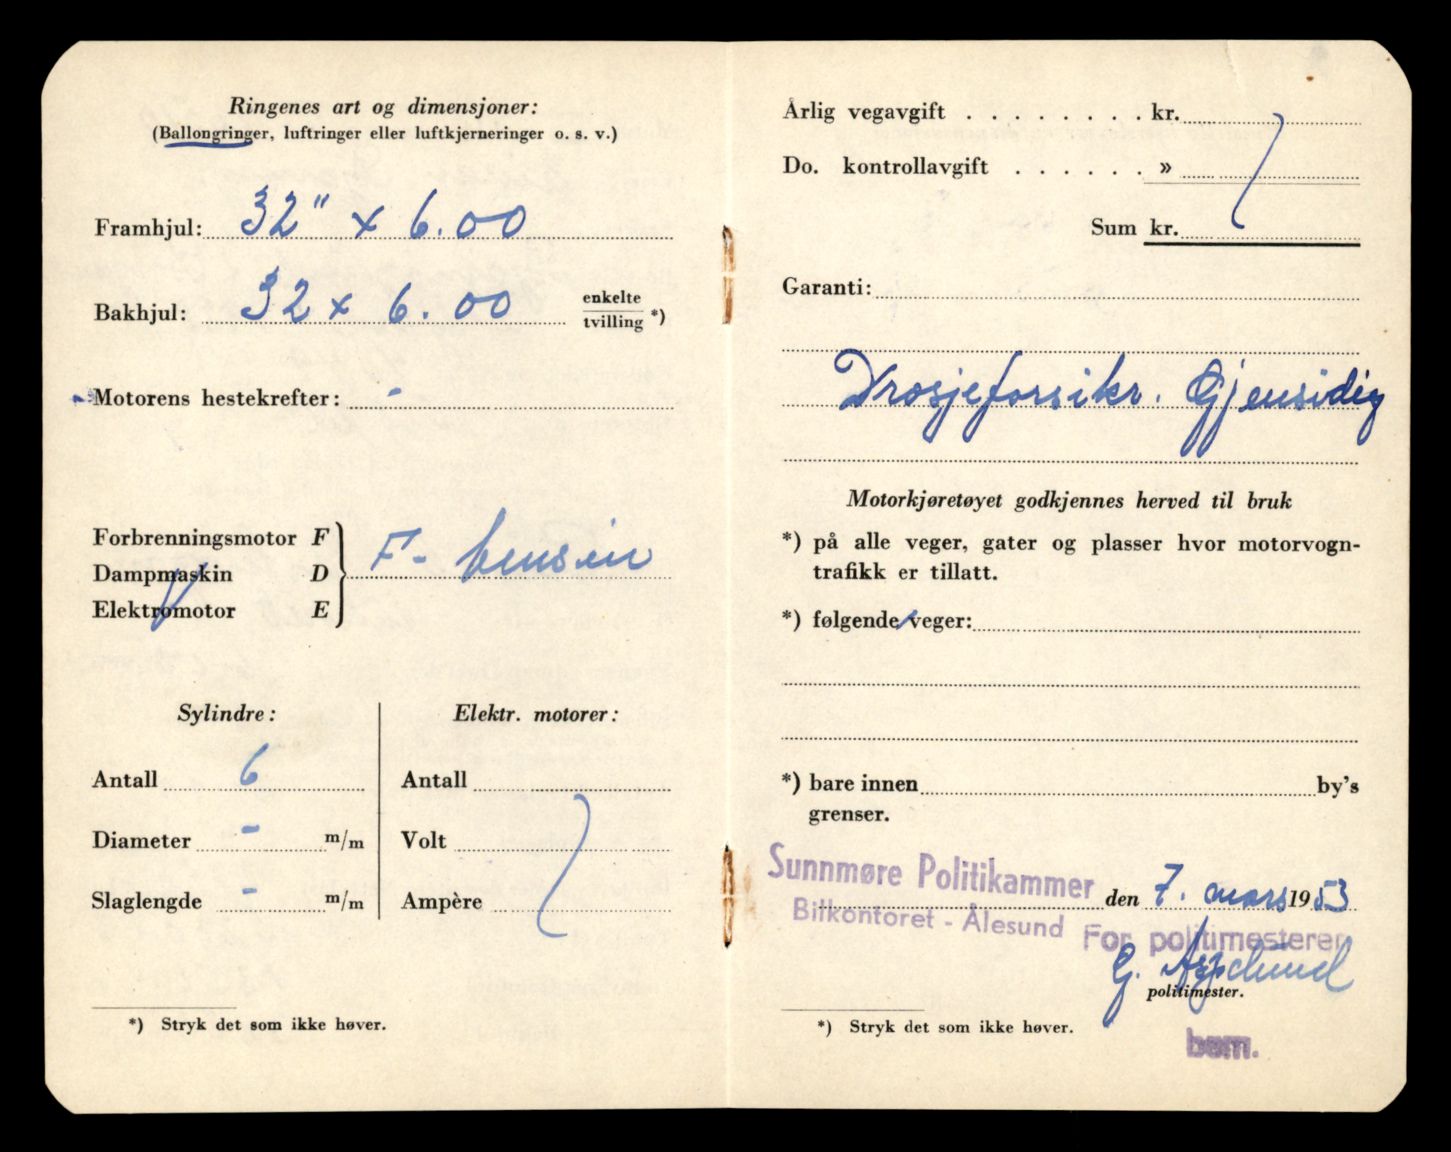 Ringenes art og dimensjoner:
(Ballongringer, luftringer eller luftkjerneringer o. s. v.)
Framhjul: 32" x 6.00
Bakhjul: 32 x 6.00 enkelte
tvilling *)
Motorens hestekrefter: -
Forbrenningsmotor F
Dampmaskin D
Elektromotor E
F- bensin
Sylindre:
Antall 6
Diameter - m/m
Slaglengde - m/m
Elektr. motorer:
Antall
Volt
Ampère
*) Stryk det som ikke høver.
Årlig vegavgift . . . . . . . . kr.
Do. kontrollavgift . . . . . . »
Sum kr.
Garanti:
Drosjeforsikr. Gjensidig
Motorkjøretøyet godkjennes herved til bruk
*) på alle veger, gater og plasser hvor motorvogn-
trafikk er tillatt.
*) følgende veger:
*) bare innen by's
grenser.
Sunnmøre Politikammer den 7. mars 1953
Bilkontoret - Ålesund For politimesteren
G.
politimester.
*) Stryk det som ikke høver.
bem.